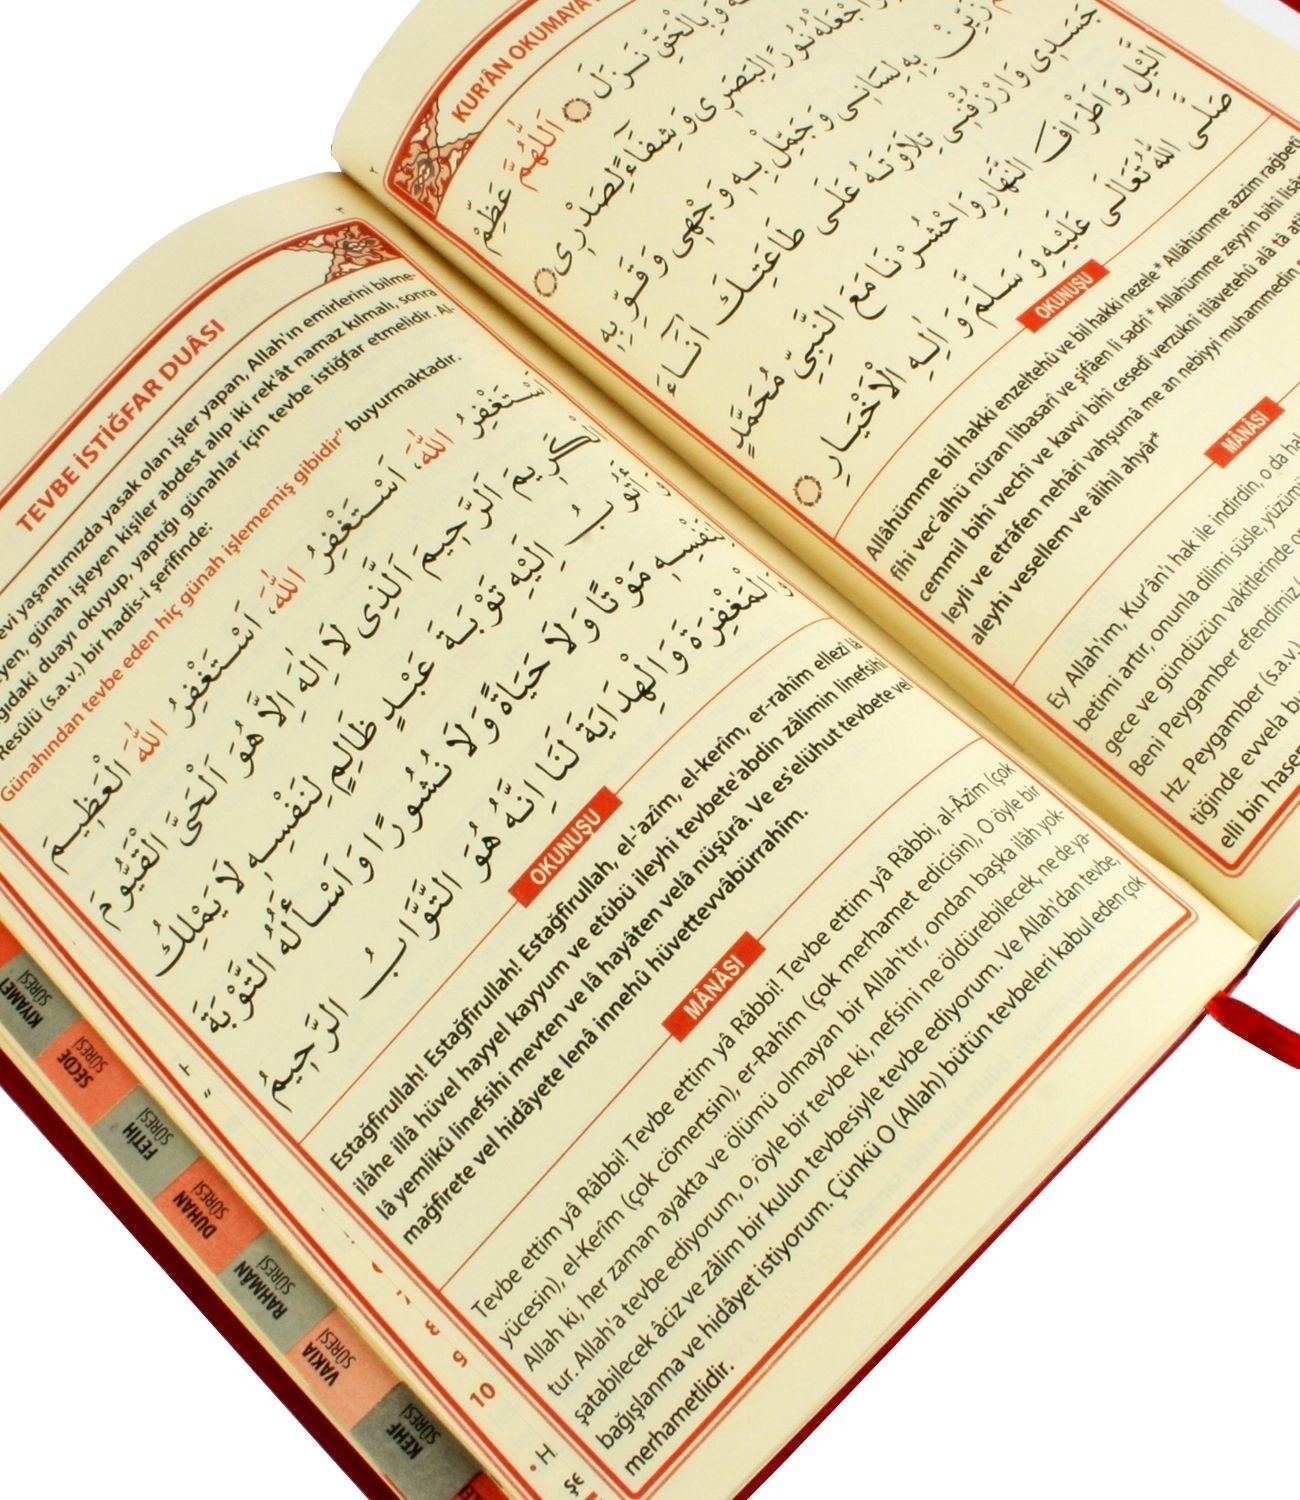 TEVBE İSTİĞFAR DUÂSI
evi yaşantımızda yasak olan işler yapan, Allah'ın emirlerini bilme-
yen, günah işleyen kişiler abdest alıp iki rek'ât namaz kılmalı, sonra
duayı okuyup, yaptığı günahlar için tevbe istiğfar etmelidir. Al-
Resûlü (s.a.v.) bir hadis-i şerifinde:
Günahından tevbe eden hiç günah işlememiş gibidir" buyurmaktadır.
اَسْتَغْفِرُ اللّٰهَ، اَسْتَغْفِرُ اللّٰهَ، اَسْتَغْفِرُ اللّٰهَ الْعَظ۪يمَ
الْكَر۪يمَ اَلرَّح۪يمَ اَلَّذ۪ى لَا اِلٰهَ اِلَّا هُوَ الْحَىَّ الْقَيُّومَ
وَاَتُوبُ اِلَيْهِ تَوْبَةَ عَبْدٍ ظَالِمٍ لِنَفْسِه۪ لَا يَمْلِكُ
لِنَفْسِه۪ مَوْتًا وَلَا حَيَاةً وَلَا نُشُورًا وَاَسْأَلُهُ التَّوْبَةَ
وَالْمَغْفِرَةَ وَالْهِدَايَةَ لَنَا اِنَّهُ هُوَ التَّوَّابُ الرَّح۪يمُ
OKUNUŞU
Estağfirullah! Estağfirullah! Estağfirullah, el-'azîm, el-kerîm, er-rahîm ellezî lâ
ilâhe illâ hüvel hayyel kayyum ve etûbü ileyhi tevbete'abdin zâlimin linefsihî
lâ yemlikû linefsihi mevten ve lâ hayâten velâ nüşûrâ. Ve es'elühut tevbete vel
mağfirete vel hidâyete lenâ innehû hüvettevvâbürrahîm.
MÂNÂSI
Tevbe ettim yâ Râbbi! Tevbe ettim yâ Râbbi! Tevbe ettim yâ Râbbi, al-Âzîm (çok
yücesin), el-Kerîm (çok cömertsin), er-Rahîm (çok merhamet edicisin), O öyle bir
Allah ki, her zaman ayakta ve ölümü olmayan bir Allah'tır, ondan başka ilâh yok-
tur. Allah'a tevbe ediyorum, o, öyle bir tevbe ki, nefsini ne öldürebilecek, ne de ya-
şatabilecek âciz ve zâlim bir kulun tevbesiyle tevbe ediyorum. Ve Allah'dan tevbe,
bağışlanma ve hidâyet istiyorum. Çünkü O (Allah) bütün tevbeleri kabul eden çok
merhametlidir.
KUR'ÂN OKUMAYA
وَبِالْحَقِّ نَزَلَ اَللّٰهُمَّ عَظِّمْ
وَاجْعَلْهُ نُورًا لِبَصَر۪ى وَشِفَاءً لِصَدْر۪ى
زَيِّنْ بِه۪ لِسَان۪ى وَجَمِّلْ بِه۪ وَجْه۪ى وَقَوِّ بِه۪
جَسَد۪ى وَارْزُقْن۪ى تِلَاوَتَهُ عَلَى طَاعَتِكَ اٰنَاءَ
الَّيْلِ وَاَطْرَافَ النَّهَارِ وَاحْشُرْنَا مَعَ النَّبِىِّ مُحَمَّدٍ
صَلَّى اللّٰهُ تَعَالَى عَلَيْهِ وَسَلَّمَ وَاٰلِهِ الْاَخْيَارِ
OKUNUŞU
Allâhümme bil hakki enzeltehü ve bil hakki nezele* Allâhümme azzim rağbetî
fihi vec'alhü nûran libasarî ve şifâen li sadrî* Allahümme zeyyin bihî
cemmil bihî vechî ve kavvi bihî cesedî verzuknî tilâvetehû alâ tâ
leyli ve etrâfen nehâri vahşurnâ me an nebiyyi muhammedin
aleyhi vesellem ve âlihil ahyâr*
MÂNÂSI
Ey Allah'ım, Kur'ân'ı hak ile indirdin, o da
betimi artır, onunla dilimi süsle, yüzümü
gece ve gündüzün vakitlerinde
Beni Peygamber efendimiz
Hz. Peygamber (s.a.v.)
tiğinde evvela
elli bin
KIYAMET SÛRESİ
SECDE SÛRESİ
FETİH SÛRESİ
DUHAN SÛRESİ
RAHMÂN SÛRESİ
VAKIA SÛRESİ
KEHF SÛRESİ
10